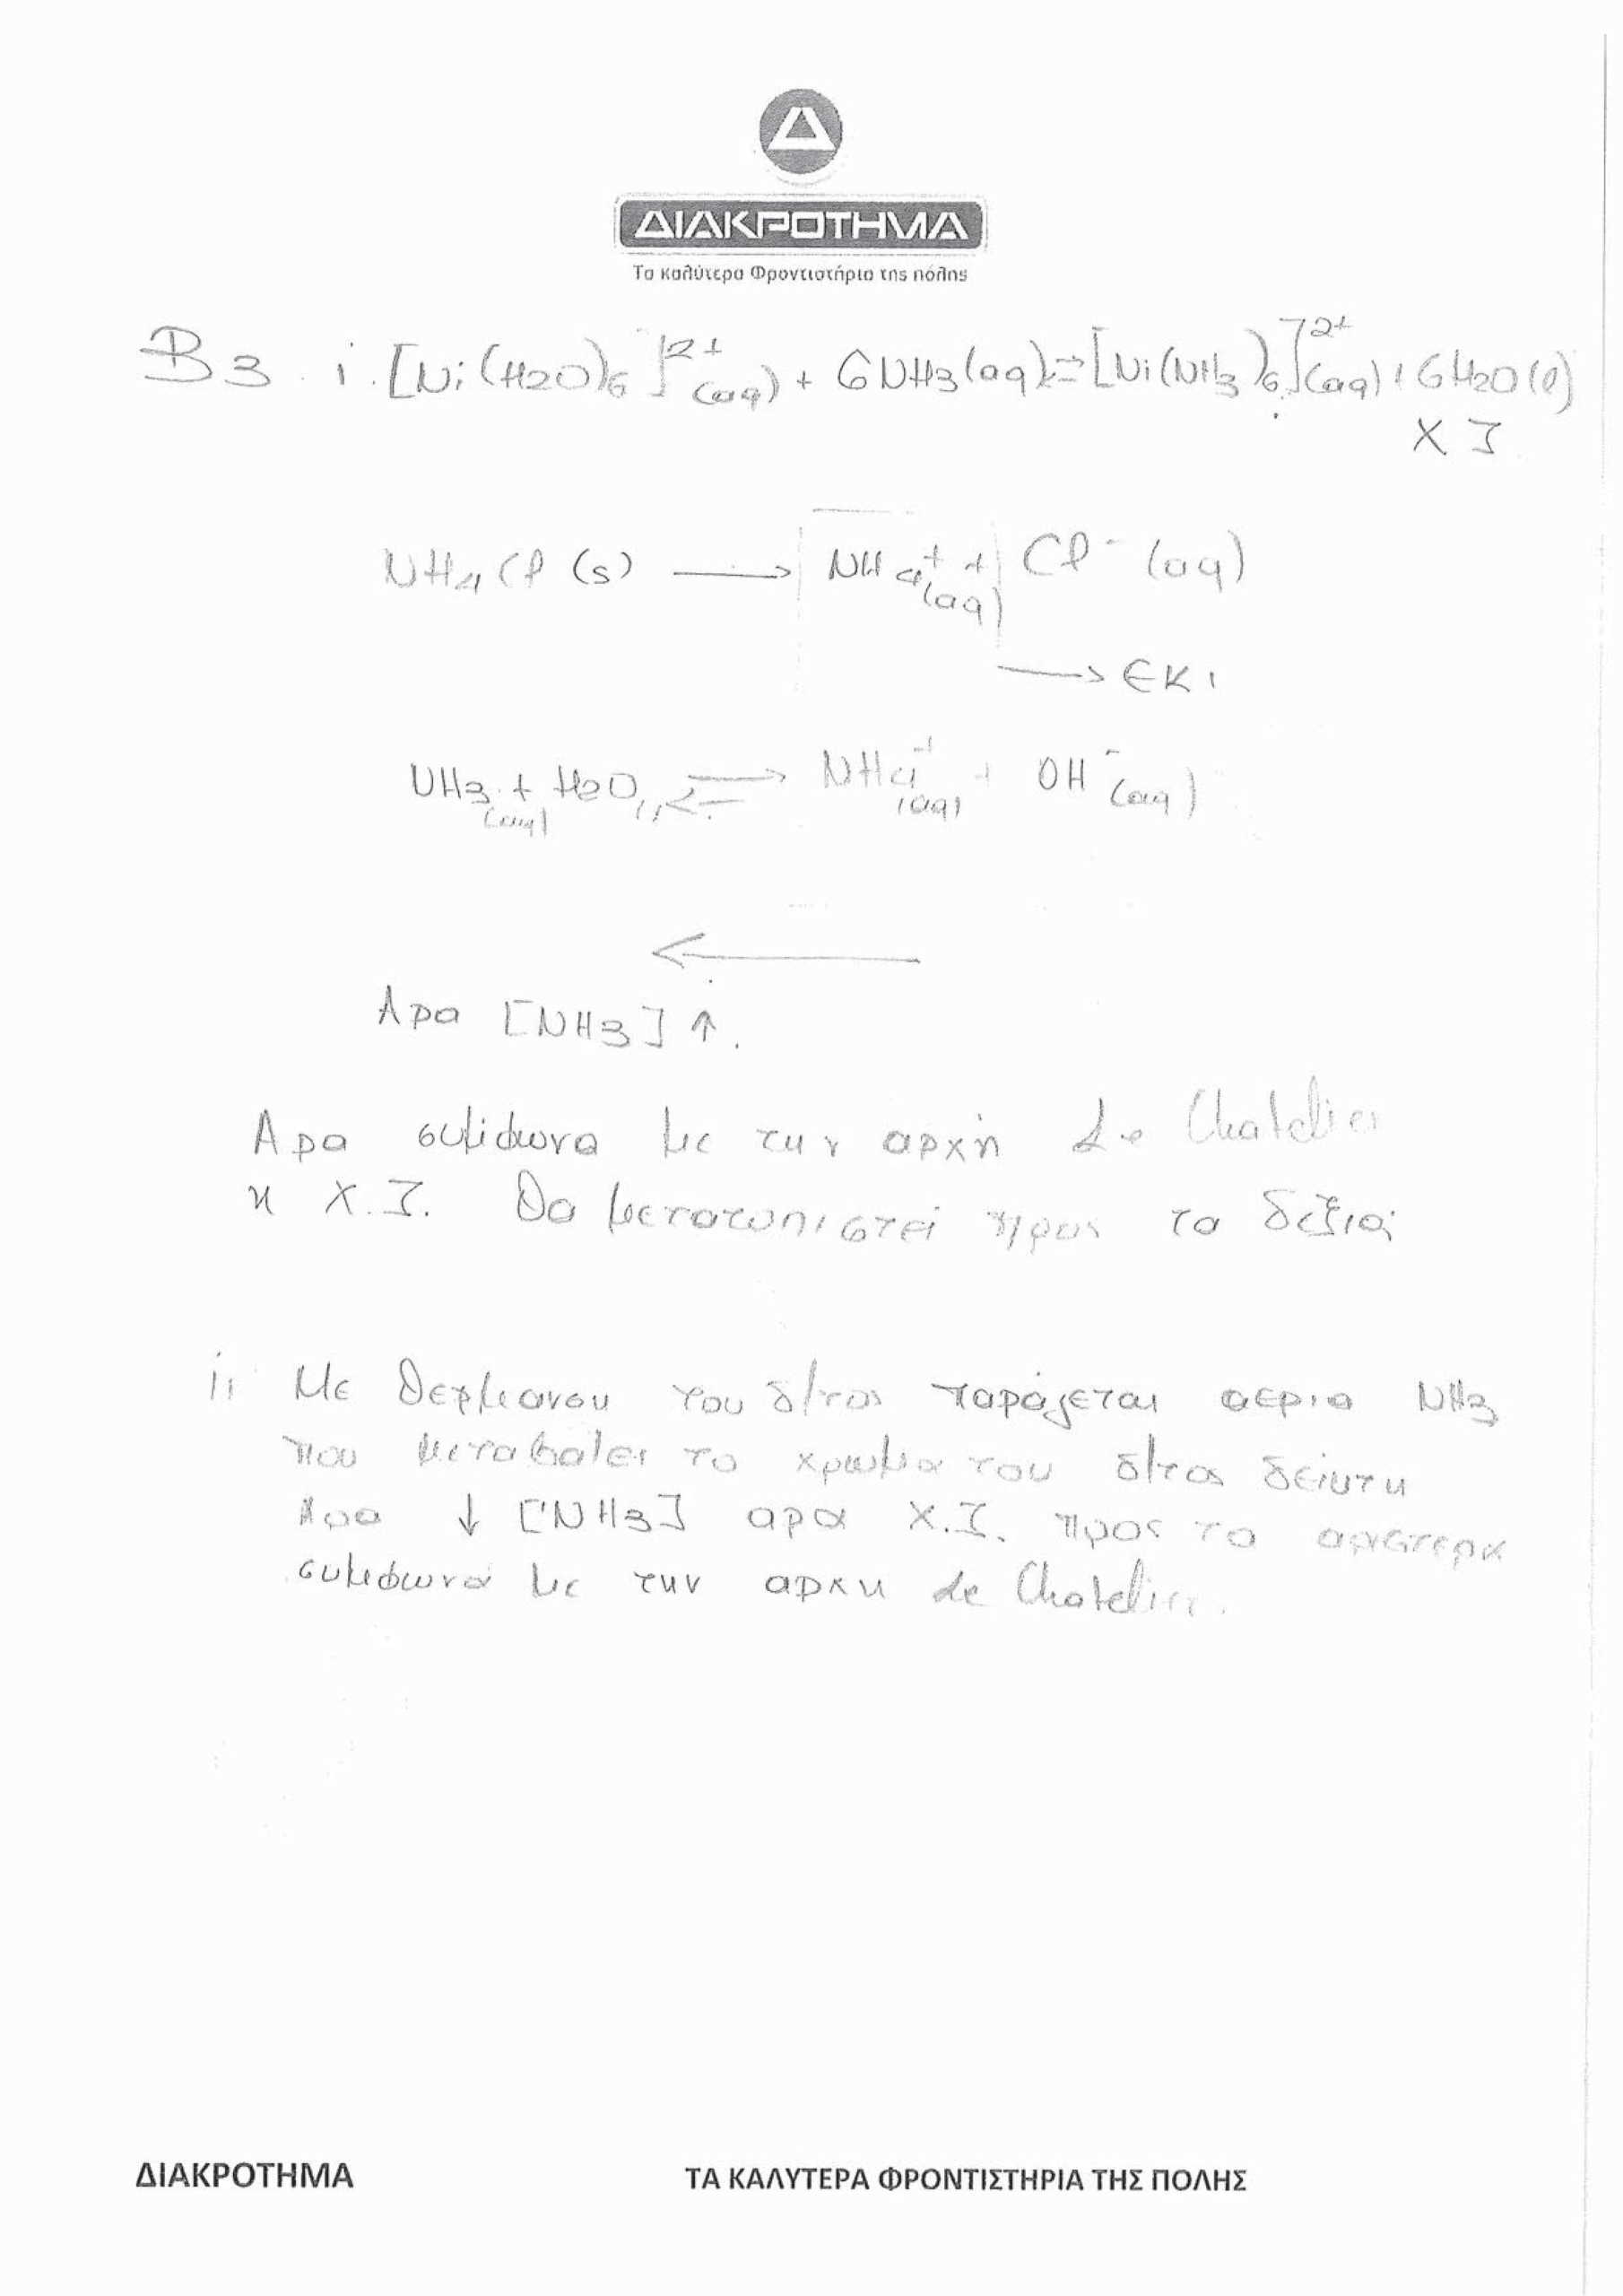 Δ
ΔΙΑΚΡΟΤΗΜΑ
Τα καλύτερα Φροντιστήρια της πόλης
B3. i. [Ni(H2O)6]2+(aq) + 6NH3(aq) ⇌ [Ni(NH3)6]2+(aq) + 6H2O(l)
X I
NH4Cl (s) → NH4+(aq) + Cl- (aq)
→ ΕΚΙ
NH3(aq) + H2O ⇌ NH4+(aq) + OH-(aq)
←
Αρα [NH3] ↑.
Αρα συμφωνα με την αρχή Le Chatelier
η Χ.Ι. θα μετατοπιστεί προς τα δεξιά
ii Με θερμανση του δ/τος παράγεται αεριο NH3
που μεταβαλει το χρωμα του δ/τος δείκτη
Αρα ↓ [NH3] αρα Χ.Ι. προς τα αριστερα
συμφωνα με την αρχη Le Chatelier.
ΔΙΑΚΡΟΤΗΜΑ ΤΑ ΚΑΛΥΤΕΡΑ ΦΡΟΝΤΙΣΤΗΡΙΑ ΤΗΣ ΠΟΛΗΣ